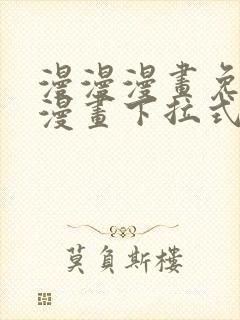 漫漫漫畫免
漫畫下拉式
莫負斯樓